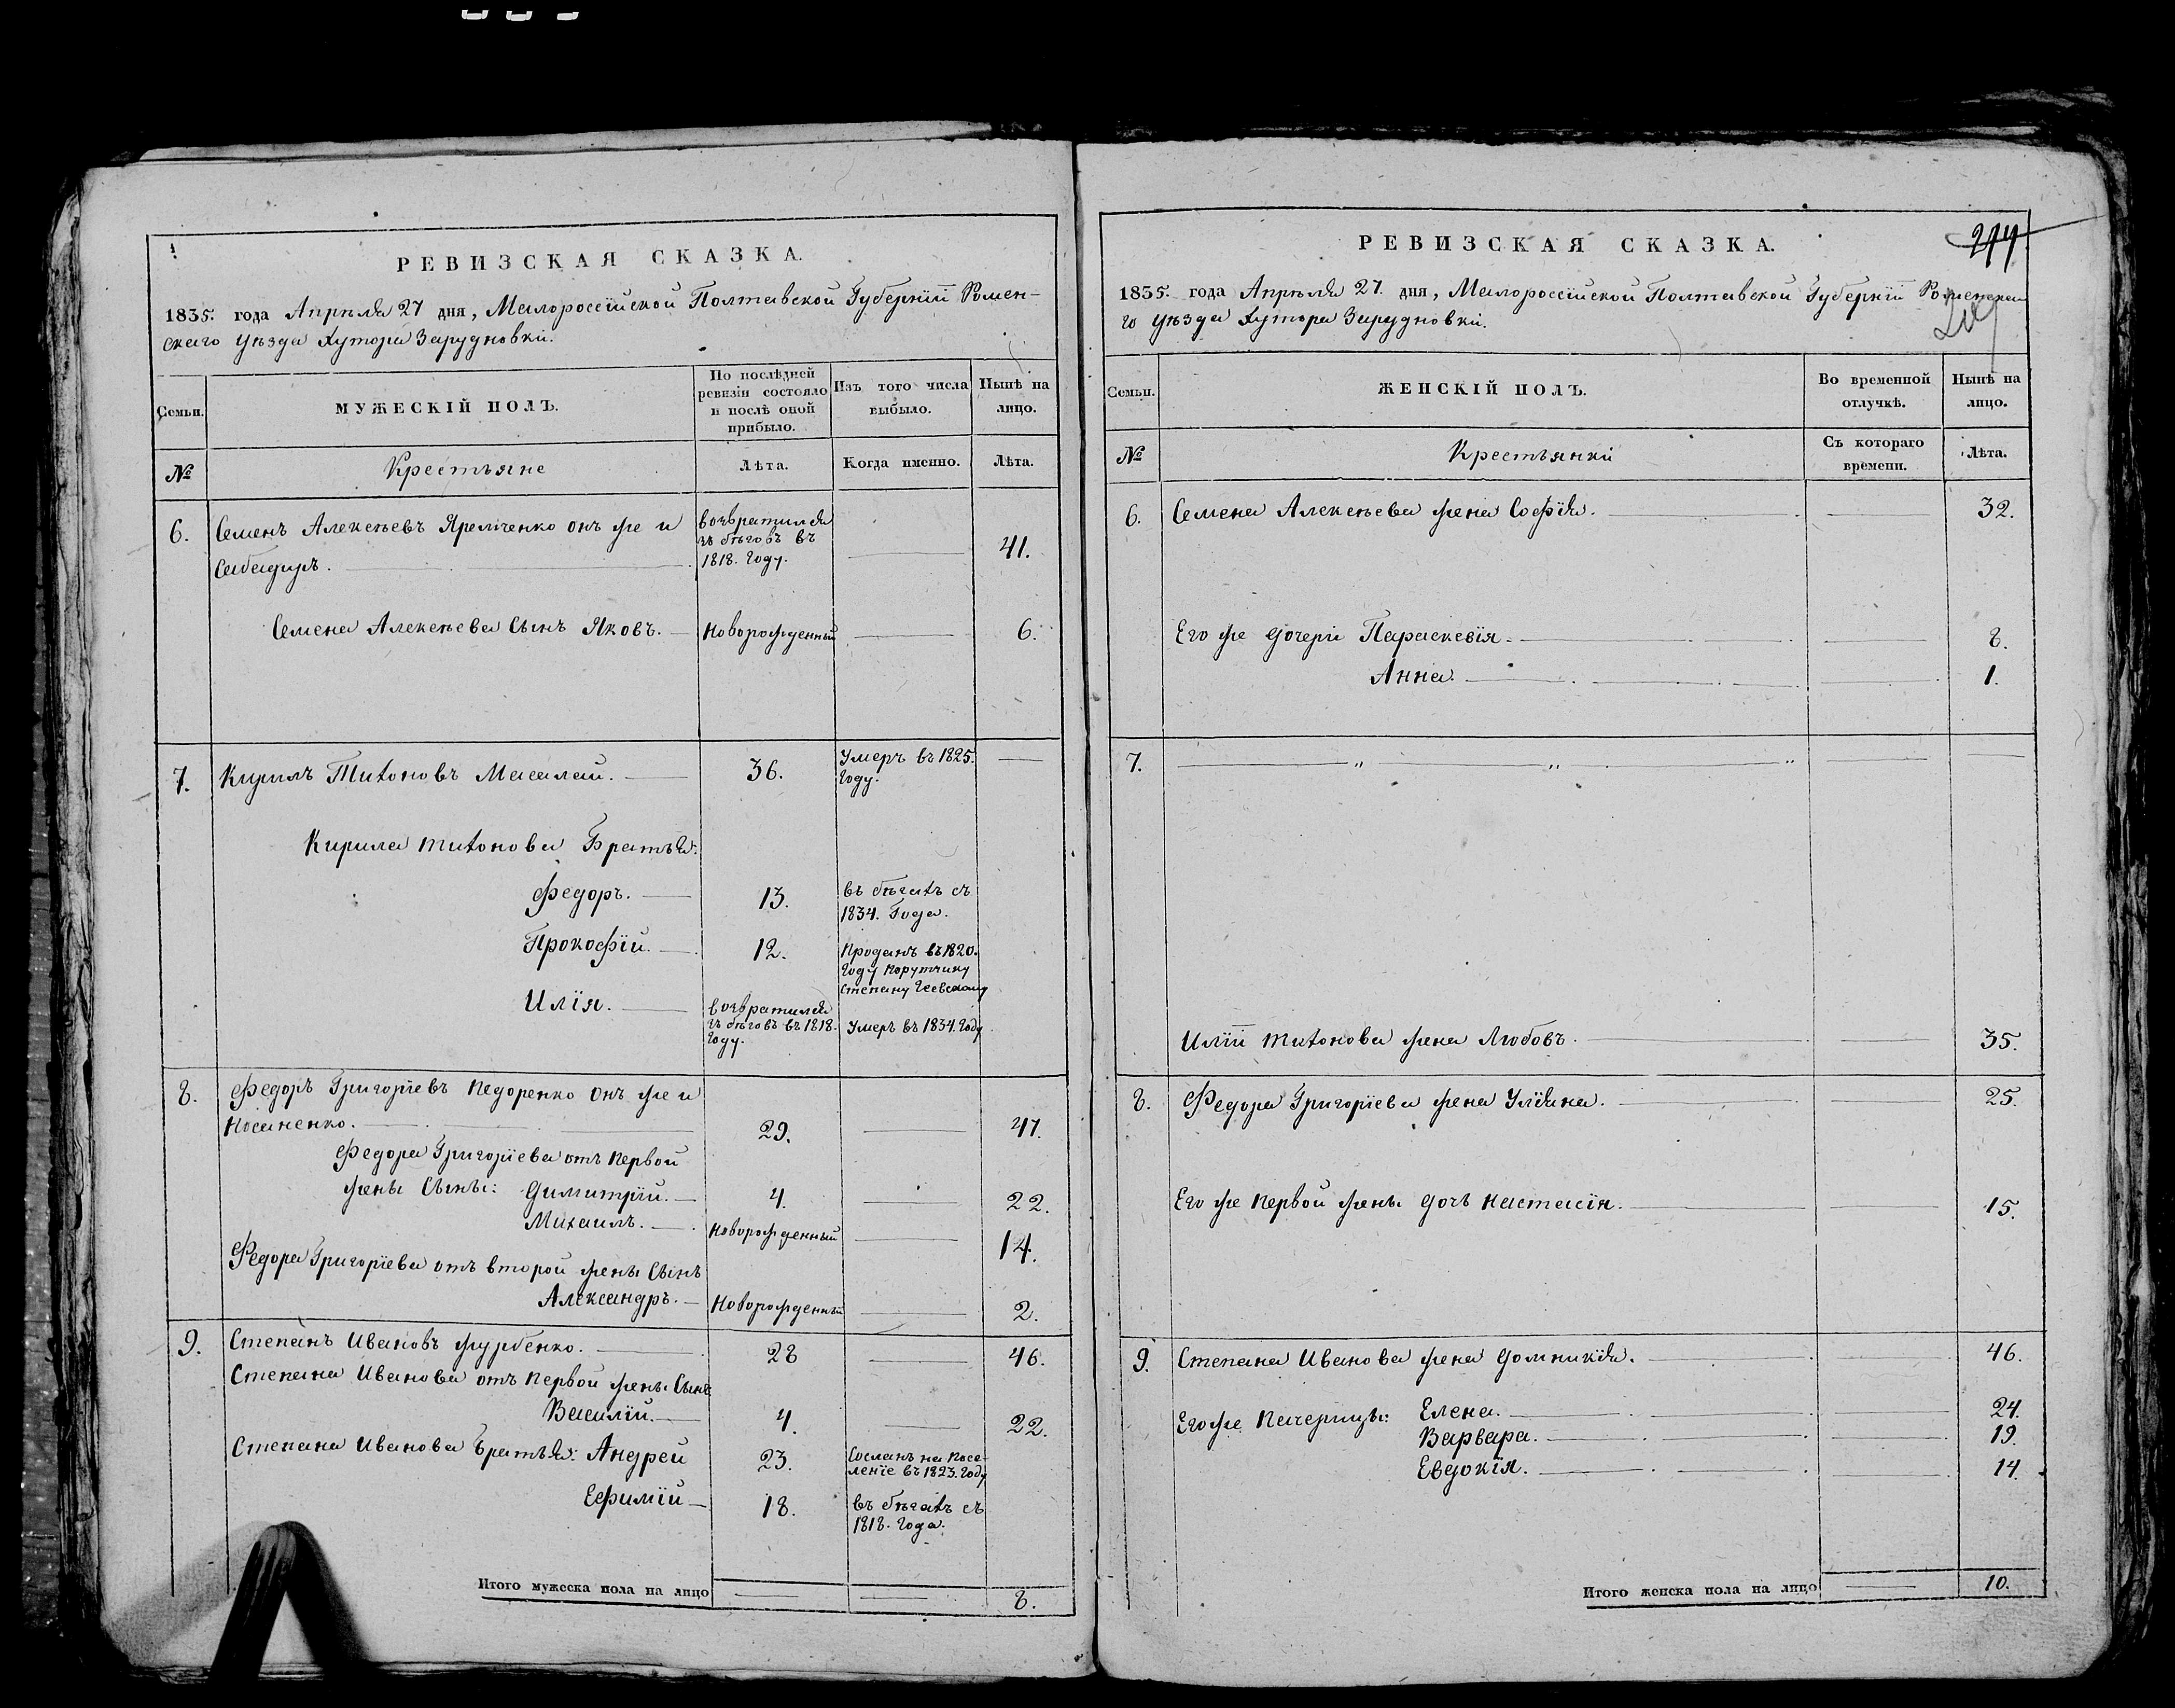 РЕВИЗСКАЯ СКАЗКА.
1835. года Апрѣля 27 дня, Малороссійской Полтавской Губерніи Ромен-
скаго Уѣзда Хутора Зарудновки.
Семьи.
МУЖЕСКІЙ ПОЛЪ.
По послѣдней
ревизіи состояло
и послѣ оной
прибыло.
Изъ того числа
выбыло.
Нынѣ на
лицо.
№
Крестьяне
Лѣта.
Когда именно.
Лѣта.
6. Семенъ Алексѣевъ онъ же и
возвратился
зъ бѣговъ въ
1818. Году.
41.
Семена Алексѣева Сынъ Яковъ. Новорожденный 6.
7. Кирилъ Тихоновъ Масалай. 36. Умеръ въ 1825.
Году.
Кирила Тихонова Братья:
Федоръ. 13. въ бѣгахъ съ
1834. Года.
Прокофій. 12. Проданъ въ 1820.
Году Порутчику
Степану
Илія. возвратился
зъ бѣговъ въ 1818.
Году.
Умеръ въ 1834. Году
8. Федоръ Григоріевъ Педоренко онъ же и
Носаненко. 29. 47.
Федора Григоріева отъ Первой
жены Сыны: Димитрій. 4. 22.
Михаилъ. Новорожденный 14.
Федора Григоріева отъ второй жены Сынъ
Александръ. Новорожденный 2.
9. Степанъ Ивановъ Журбенко. 28 46.
Степана Иванова отъ Первой жены Сынъ
Василій. 4. 22.
Степана Иванова Братья: Андрей 23. Сосланъ на Посе-
леніе въ 1823. Году
Ефимій 18. въ бѣгахъ съ
1818. Года.
Итого мужеска пола на лицо 8.
РЕВИЗСКАЯ СКАЗКА.
1835. года Апрѣля 27. дня, Малороссійской Полтавской Губерніи Роменска
го Уѣзда Хутора Зарудновки.
Семьи.
ЖЕНСКІЙ ПОЛЪ.
Во временной
отлучкѣ.
Нынѣ на
лицо.
№
Крестьянки
Съ котораго
времени.
Лѣта.
6. Семена Алексѣева жена Софія. 32.
Его же дочери Параскевія. 8.
Анна. 1.
7.
Иліи Тихонова жена Любовъ. 35.
8. Федора Григоріева жена Уліяна. 25.
Его же Первой жены дочь Настасія. 15.
9. Степана Иванова жена Домникія. 46.
Его же Пачерицы: Елена. 24.
Варвара. 19.
Евдокія. 14.
Итого женска пола на лицо 10.